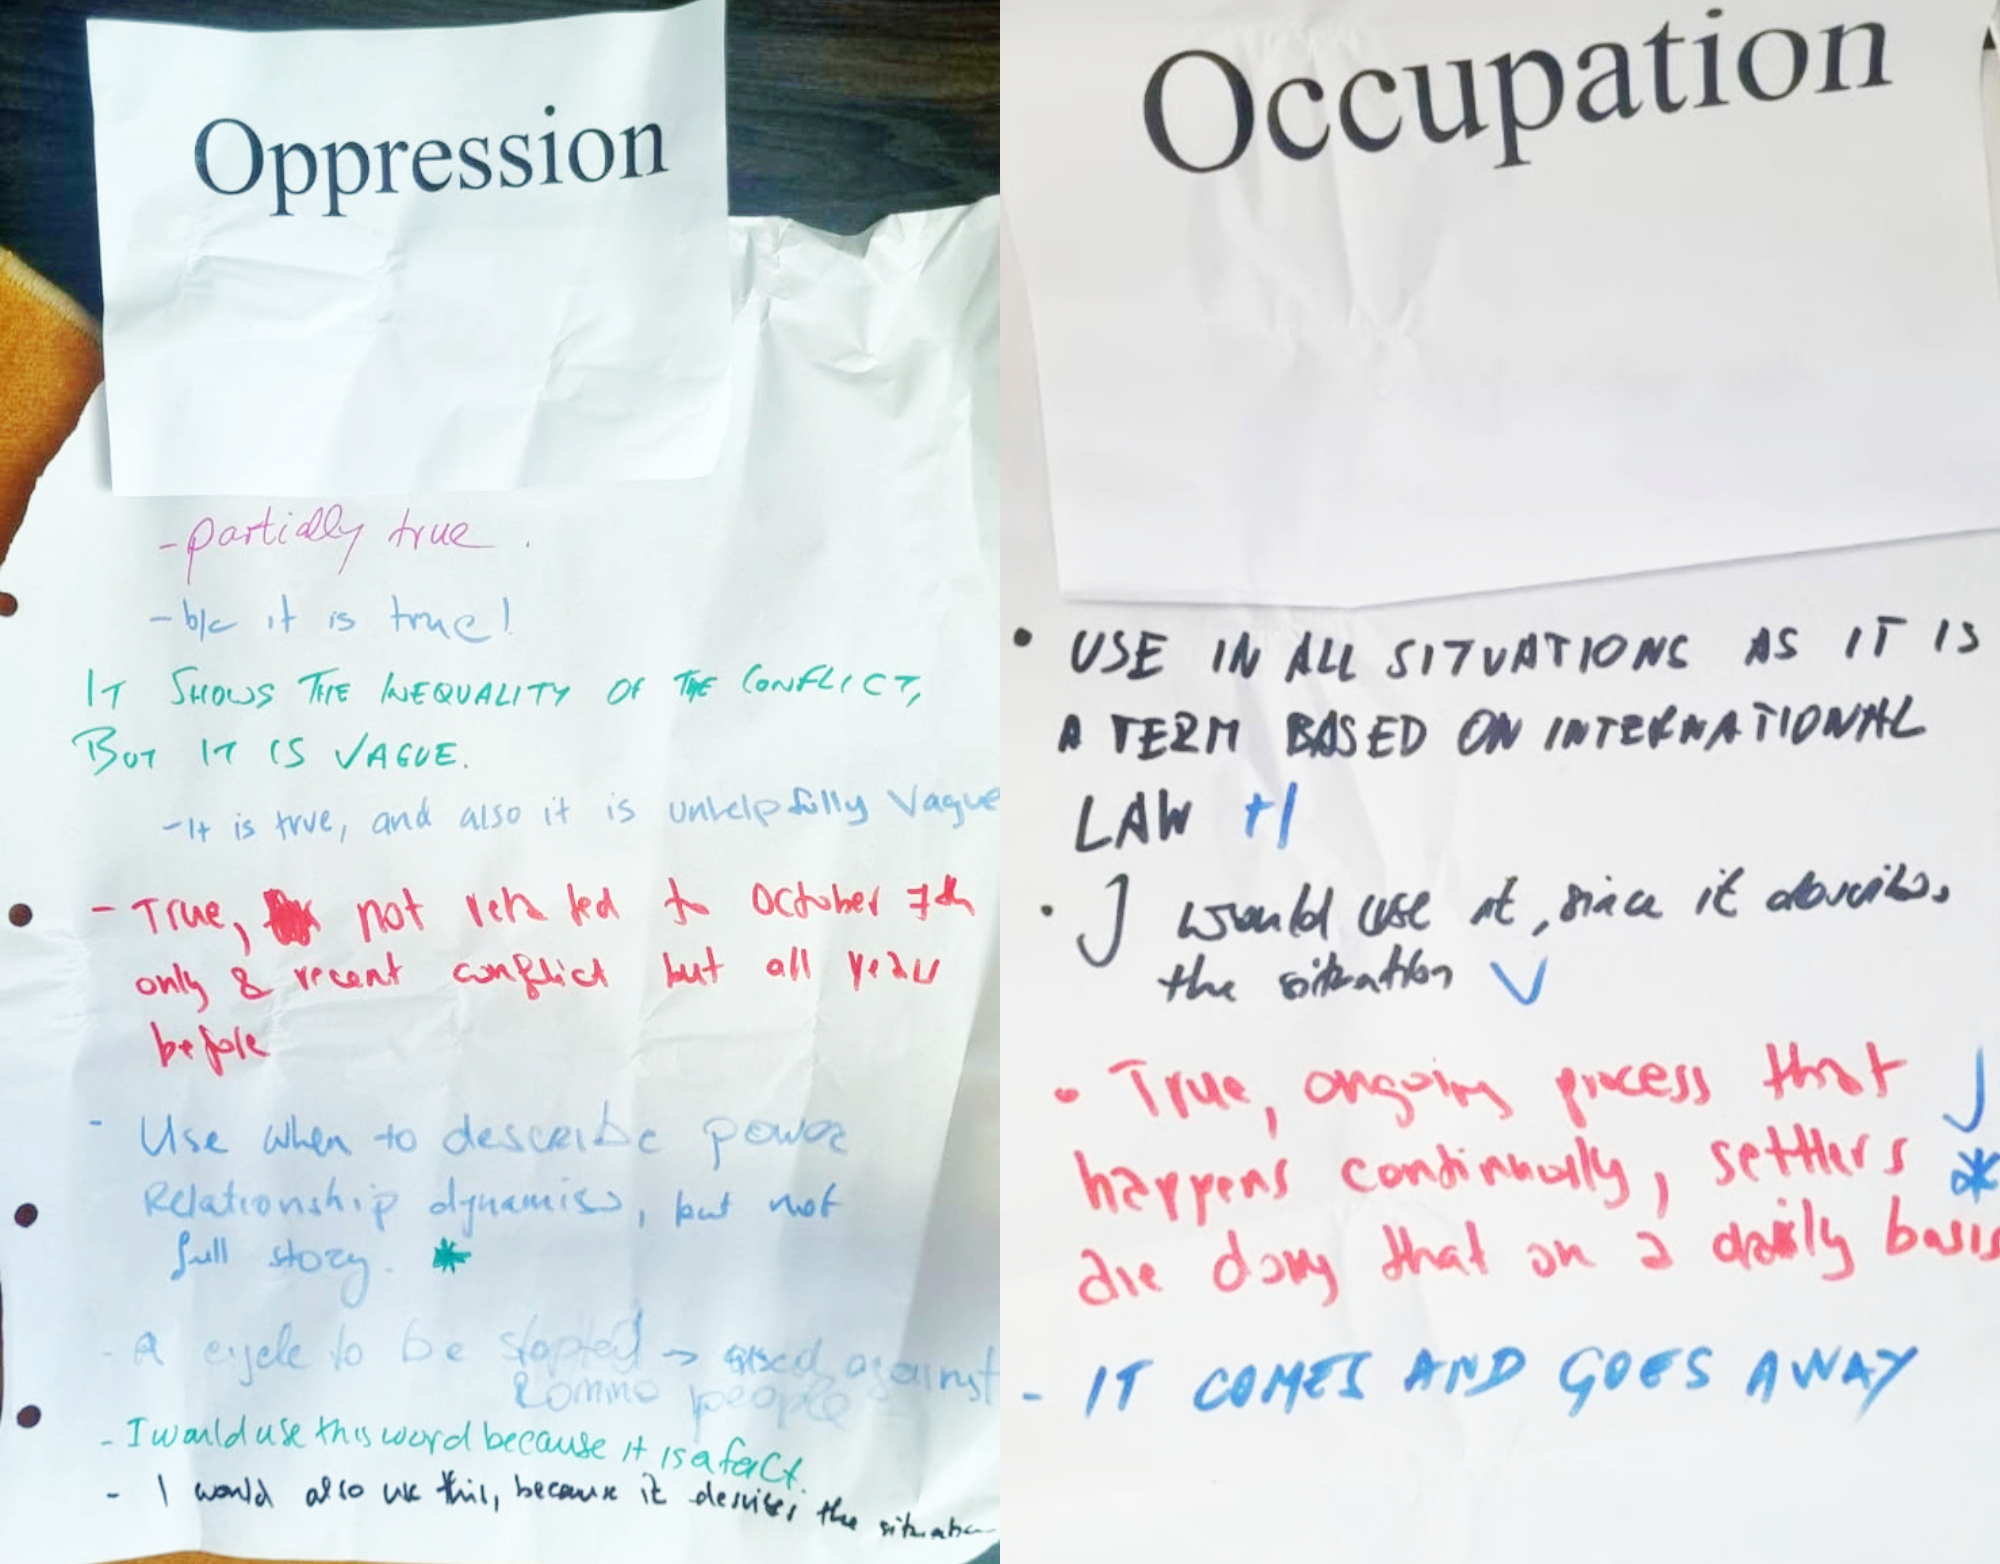 Oppression
- partially true.
- b/c it is true!
IT SHOWS THE INEQUALITY OF THE CONFLICT,
BUT IT IS VAGUE.
- It is true, and also it is unhelpfully vague
- True, not related to October 7th
only & recent conflict but all years
before
- Use when to describe power
Relationship dynamics, but not
full story. *
- A cycle to be stopped → used against
people
- I would use this word because it is a fact.
- I would also use this, because it describes the situation
Occupation
• USE IN ALL SITUATIONS AS IT IS
A TERM BASED ON INTERNATIONAL
LAW +1
• I would use it, since it describes
the situation V
• True, ongoing process that
happens continually, settlers *
are doing that on a daily basis
- IT COMES AND GOES AWAY